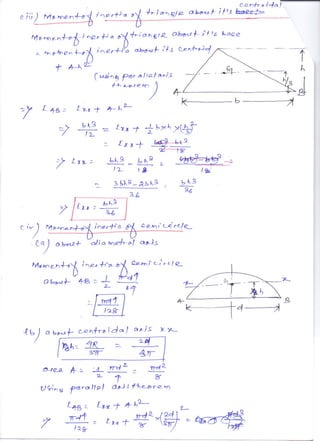 centroidal
(iii) Moment of inertia of triangle about it's base
Moment of inertia of triangle about it's base
= moment of inertia about its centroid
+ A·h²
(using parallel axis theorem)
G
h
h/3
A
B
b
=> IAB = Ixx + A·h²
=> bh³/12 = Ixx + 1/2 b×h × (h/3)²
= Ixx + bh³/18
=> Ixx = bh³/12 - bh³/18
= 3bh³ - 2bh³ / 36 = bh³/36
=> Ixx = bh³/36
(iv) Moment of inertia of semicircle
(a) about diametral axis
Moment of inertia of semicircle
about AB = 1/2 × πd⁴/64
= πd⁴/128
x
x
h
A
B
d
(b) about centroidal axis x x
h = 4R/3π = 2d/3π
area A = 1/2 πd²/4 = πd²/8
Using parallel axis theorem
IAB = Ixx + A·h²
=> πd⁴/128 = Ixx + πd²/8 × (2d/3π)²